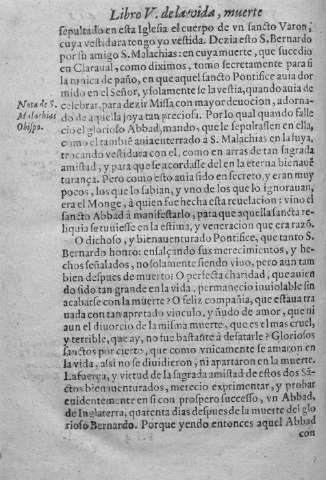 Libro V. de la vida, muerte
sepultado en esta Iglesia el cuerpo de vn sancto Varon,
cuya vestidura tengo yo vestida. Dezia esto S. Bernardo
por su amigo S. Malachias: en cuya muerte, que sucedio
en Claraual, como diximos, tomo secretamente para si
la tunica de paño, en que aquel sancto Pontifice auia dor-
mido en el Señor, y solamente se la vestia, quando auia de
celebrar, para dezir Missa con mayor deuocion, adorna-
Nota de S.
Malachias
Obispo.
do de aquella joya tan preciosa. Por lo qual quando falle
cio el glorioso Abbad, mando, que le sepultassen en ella,
como el tambiē auia enterrado a S. Malachias en la suya,
trocando vestidura con el, como en arras de tan sagrada
amistad, y para que se acordasse del en la eterna bienauē
turança. Pero como esto auia sido en secreto, y eran muy
pocos, los que lo sabian, y vno de los que lo ignorauan,
era el Monge, à quien fue hecha esta reuelacion: vino el
sancto Abbad à manifestarlo, para que aquella sancta re-
liquia se tuuiesse en la estima, y veneracion que era razõ.
O dichoso, y bienauenturado Pontifice, que tanto S.
Bernardo honro: ensalçando sus merecimientos, y he-
chos señalados, no solamente siendo viuo, pero aun tam
bien despues de muerto! O perfecta charidad, que auien
do sido tan grande en la vida, permanecio inuiolable sin
acabarse con la muerte? O feliz compañia, que estaua tra
uada con tan apretado vinculo, y ñudo de amor, que ni
aun el diuorcio de la misma muerte, que es el mas cruel,
y terrible, que ay, no fue bastante à desatarle? Gloriosos
sanctos por cierto, que como vnicamente se amaron en
la vida, assi no se diuidieron, ni apartaron en la muerte.
La fuerça, y virtud de la sagrada amistad de estos dos Sā-
ctos bienauenturados, merecio exprimentar, y probar
euidentemente en si con prospero successo, vn Abbad,
de Inglaterra, quarenta dias despues de la muerte del glo
rioso Bernardo. Porque yendo entonces aquel Abbad
con